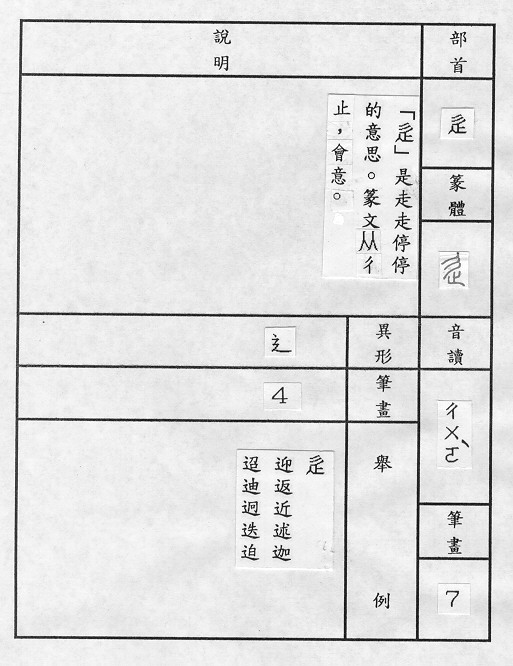 部首
辵
篆體
音讀
ㄔㄨㄛˋ
筆畫
7
說明
「辵」是走走停停
的意思。篆文从彳
止，會意。
異形
辶
筆畫
4
舉例
辵
迎返近述迦
迢迪迥迭迫